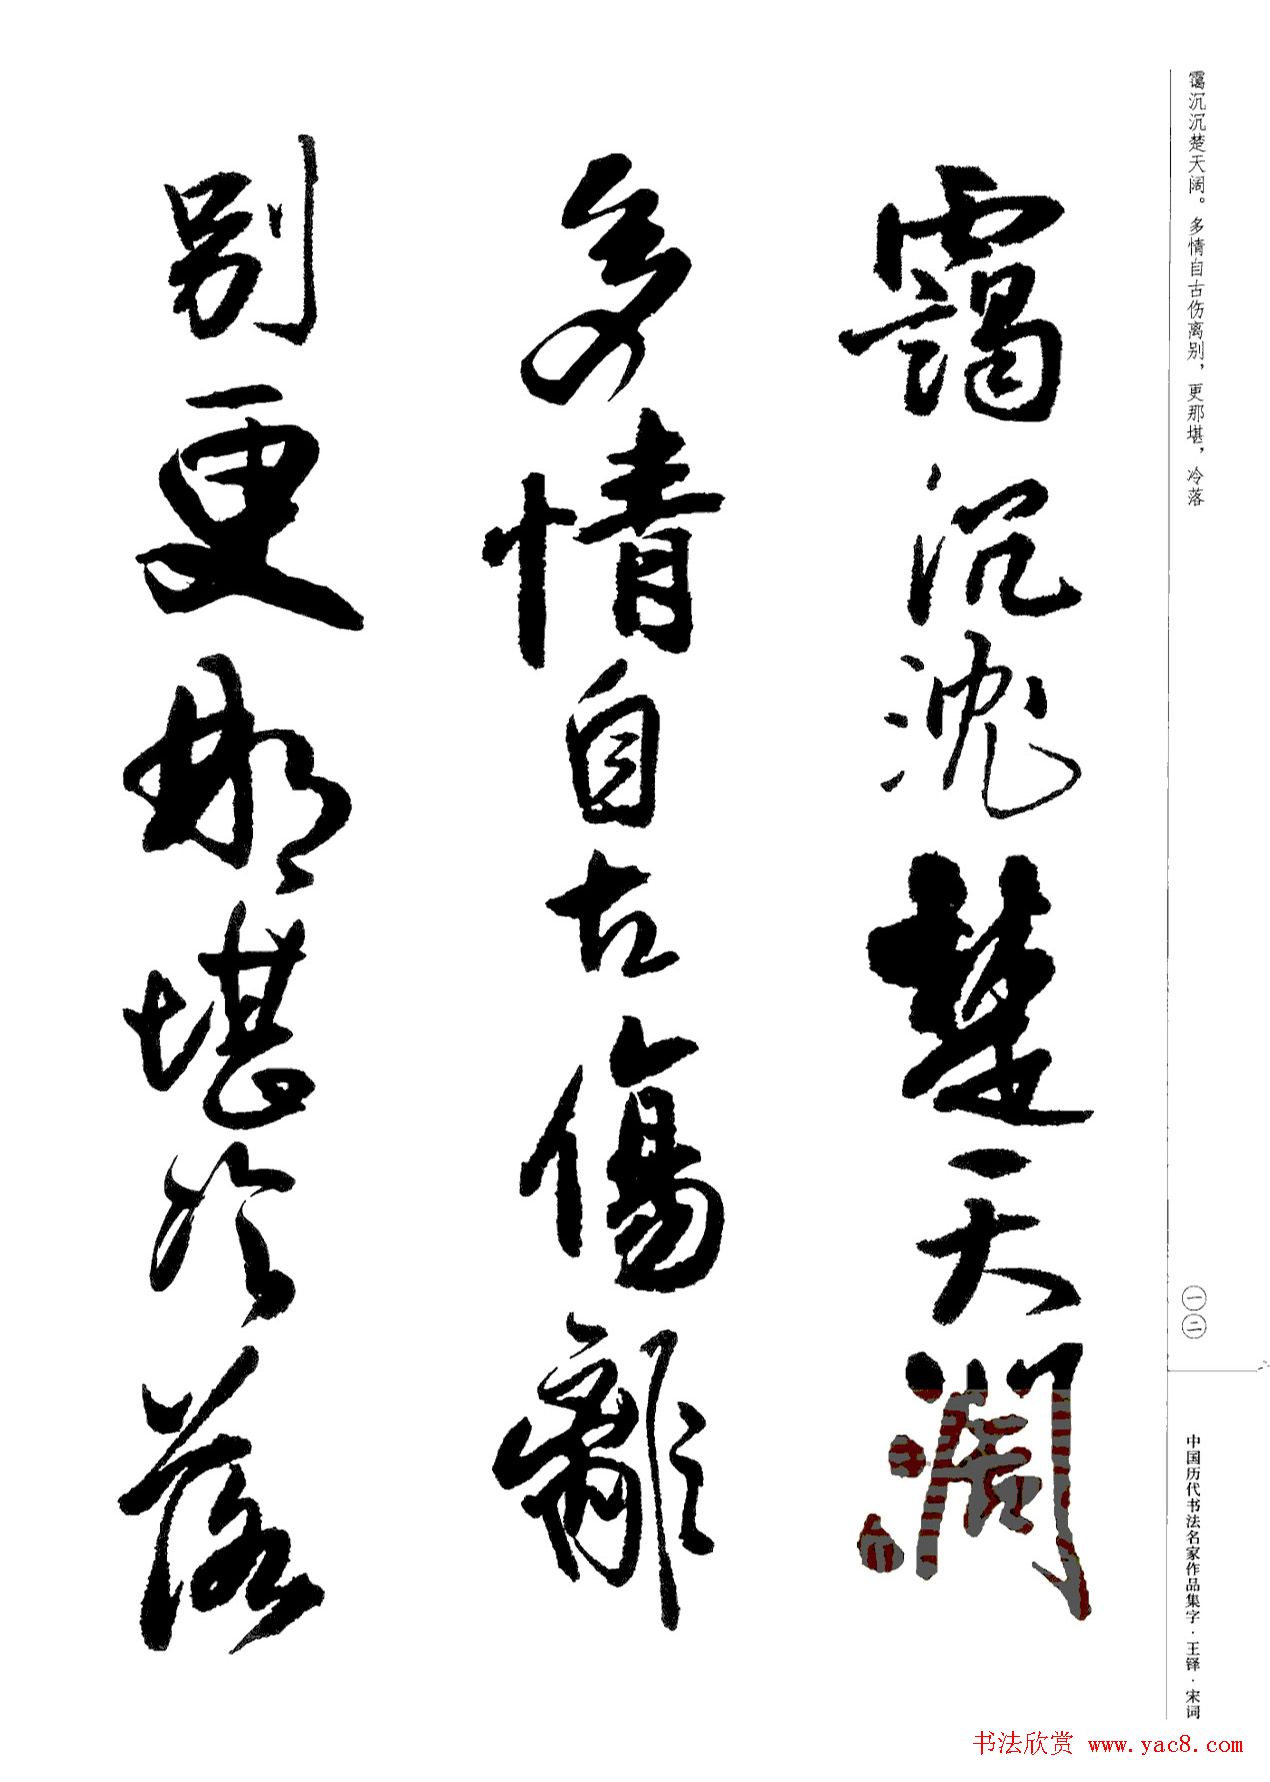 霭沉沉楚天阔。多情自古伤离别，更那堪，冷落
靄沉沈楚天濶
多情自古傷離
别更那堪冷落
一二
中国历代书法名家作品集字·王铎·宋词
书法欣赏 www.yac8.com